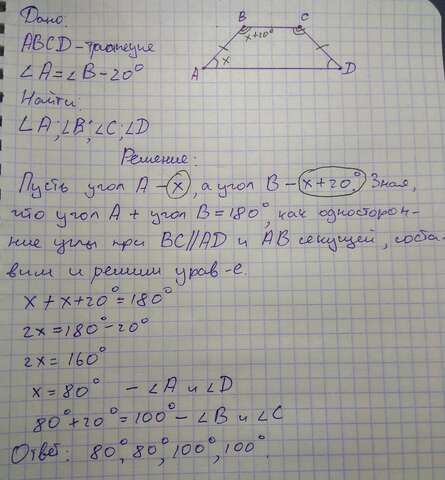 Дано:
ABCD - трапеция
∠A = ∠B - 20°
Найти:
∠A; ∠B; ∠C; ∠D
B C
x+20°
x
A D
Решение:
Пусть угол A - x, а угол B - x+20°. Зная,
что угол A + угол B = 180°, как односторон-
ние углы при BC//AD и AB секущей, соста-
вим и решим урав-е.
x + x + 20° = 180°
2x = 180° - 20°
2x = 160°
x = 80° - ∠A и ∠D
80° + 20° = 100° - ∠B и ∠C
Ответ: 80°, 80°, 100°, 100°.